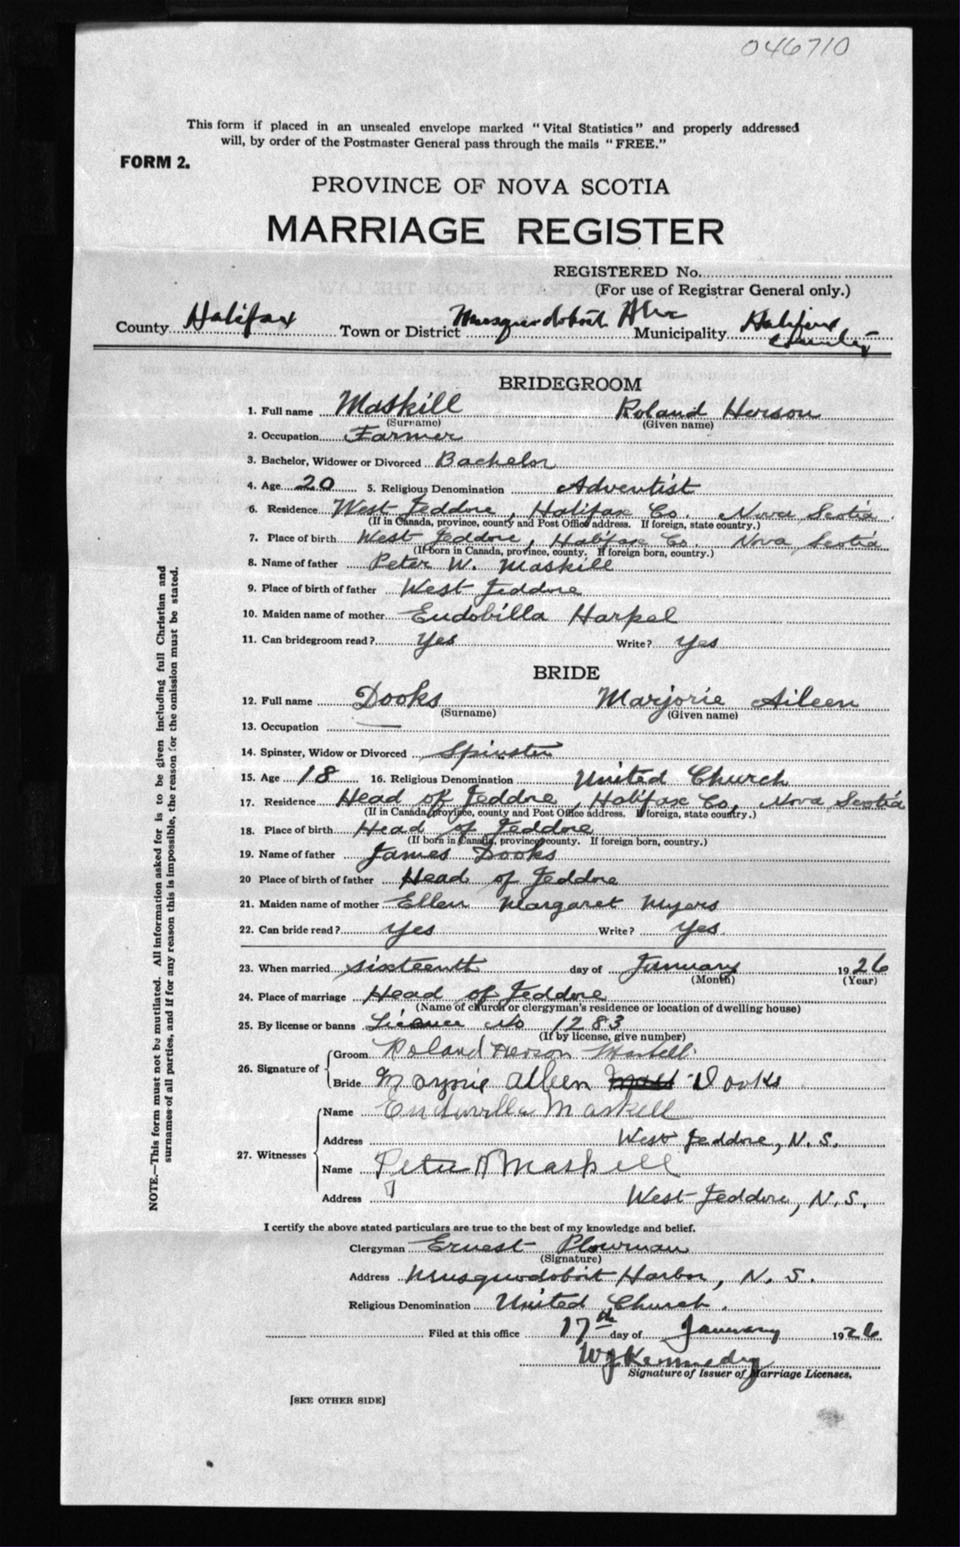 046710
This form if placed in an unsealed envelope marked "Vital Statistics" and properly addressed
will, by order of the Postmaster General pass through the mails "FREE."
FORM 2.
PROVINCE OF NOVA SCOTIA
MARRIAGE REGISTER
REGISTERED No.
(For use of Registrar General only.)
County Halifax Town or District Musquodoboit Hbr Municipality Halifax
County
BRIDEGROOM
1. Full name Maskill Roland Herson
(Surname) (Given name)
2. Occupation Farmer
3. Bachelor, Widower or Divorced Bachelor
4. Age 20 5. Religious Denomination Adventist
6. Residence West Jeddore, Halifax Co. Nova Scotia.
(If in Canada, province, county and Post Office address. If foreign, state country.)
7. Place of birth West Jeddore, Halifax Co. Nova Scotia
(If born in Canada, province, county. If foreign born, country.)
8. Name of father Peter W. Maskill
9. Place of birth of father West Jeddore
10. Maiden name of mother Eudobilla Harpel
11. Can bridegroom read? Yes Write? Yes
BRIDE
12. Full name Dooks Marjorie Aileen
(Surname) (Given name)
13. Occupation —
14. Spinster, Widow or Divorced Spinster
15. Age 18 16. Religious Denomination United Church
17. Residence Head of Jeddore, Halifax Co, Nova Scotia
(If in Canada, province, county and Post Office address. If foreign, state country.)
18. Place of birth Head of Jeddore
(If born in Canada, province, county. If foreign born, country.)
19. Name of father James Dooks
20 Place of birth of father Head of Jeddore
21. Maiden name of mother Ellen Margaret Myers
22. Can bride read? Yes Write? Yes
23. When married sixteenth day of January 1926
(Month) (Year)
24. Place of marriage Head of Jeddore
(Name of church or clergyman's residence or location of dwelling house)
25. By license or banns License No 1283
(If by license, give number)
26. Signature of
Groom Roland Herson Maskell
Bride Aileen Dooks
27. Witnesses
Name Maskell
Address West Jeddore, N. S.
Name Peter Maskell
Address West Jeddore, N. S.
I certify the above stated particulars are true to the best of my knowledge and belief.
Clergyman Ernest Plowman
(Signature)
Address Musquodoboit Harbor, N. S.
Religious Denomination United Church.
Filed at this office 17th day of January 1926
W J Kennedy
Signature of Issuer of Marriage Licenses.
[SEE OTHER SIDE]
NOTE.—This form must not be mutilated. All information asked for is to be given including full Christian and
surnames of all parties, and if for any reason this is impossible, the reason for the omission must be stated.